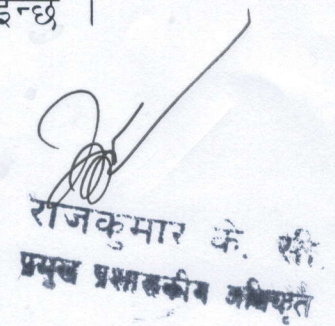 न्छ ।
राजकुमार के. सी.
प्रमुख प्रशासकीय अधिकृत